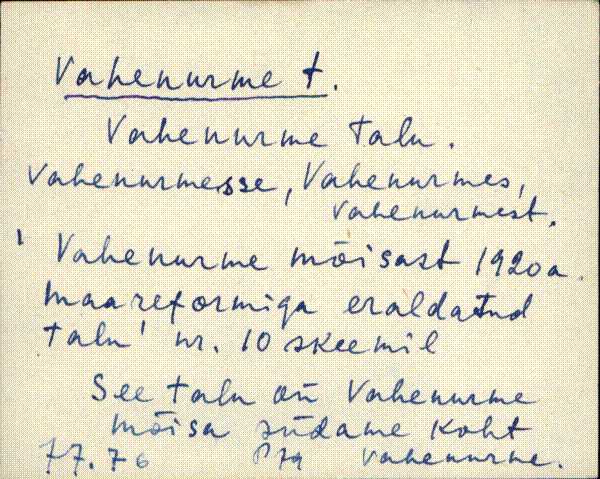 Vahenurme t.
Vahenurme talu.
Vahenurmesse, Vahenurmes,
Vahenurmest.
' Vahenurme mõisast 1920 a.
maareformiga eraldatud
talu' nr. 10 skeemil
See talu on Vahenurme
mõisa südame koht
77.76 Vahenurme.